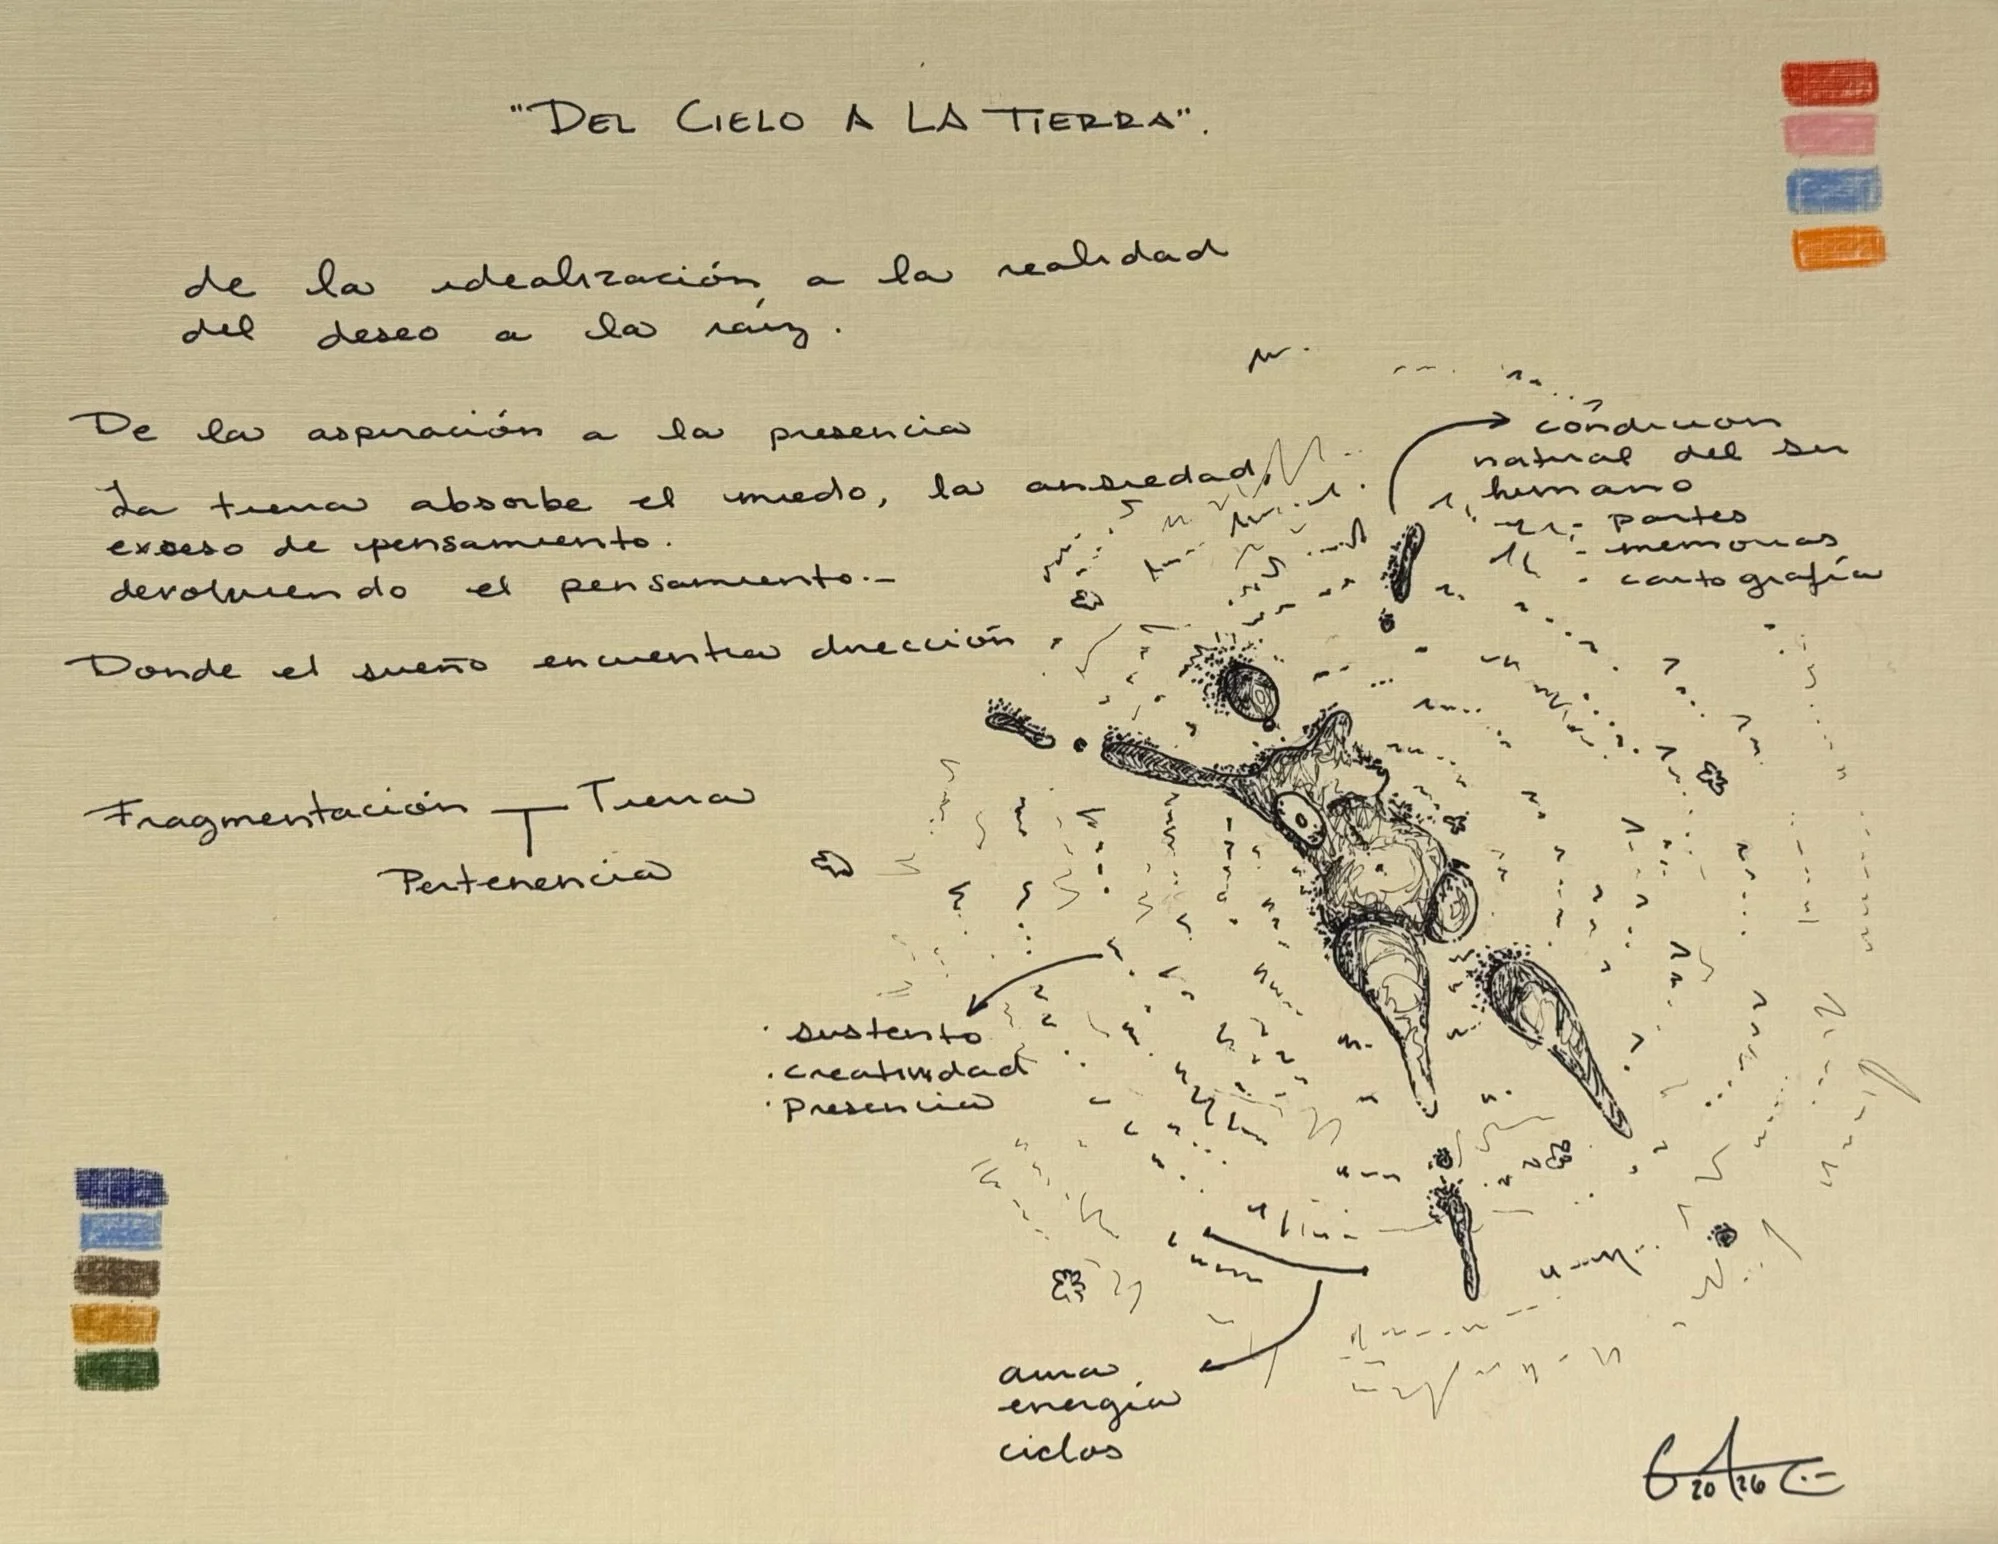 "DEL CIELO A LA TIERRA".
de la idealización a la realidad
del deseo a la raíz.
De la aspiración a la presencia
La tierra absorbe el miedo, la ansiedad,
exceso de pensamiento.
devolviendo el pensamiento.-
Donde el sueño encuentra dirección
Fragmentación Tierra
Pertenencia
condición
natural del ser
humano
- partes
- memorias
- cartografía
· sustento
· creatividad
· presencia
aura
energía
ciclos
20 26